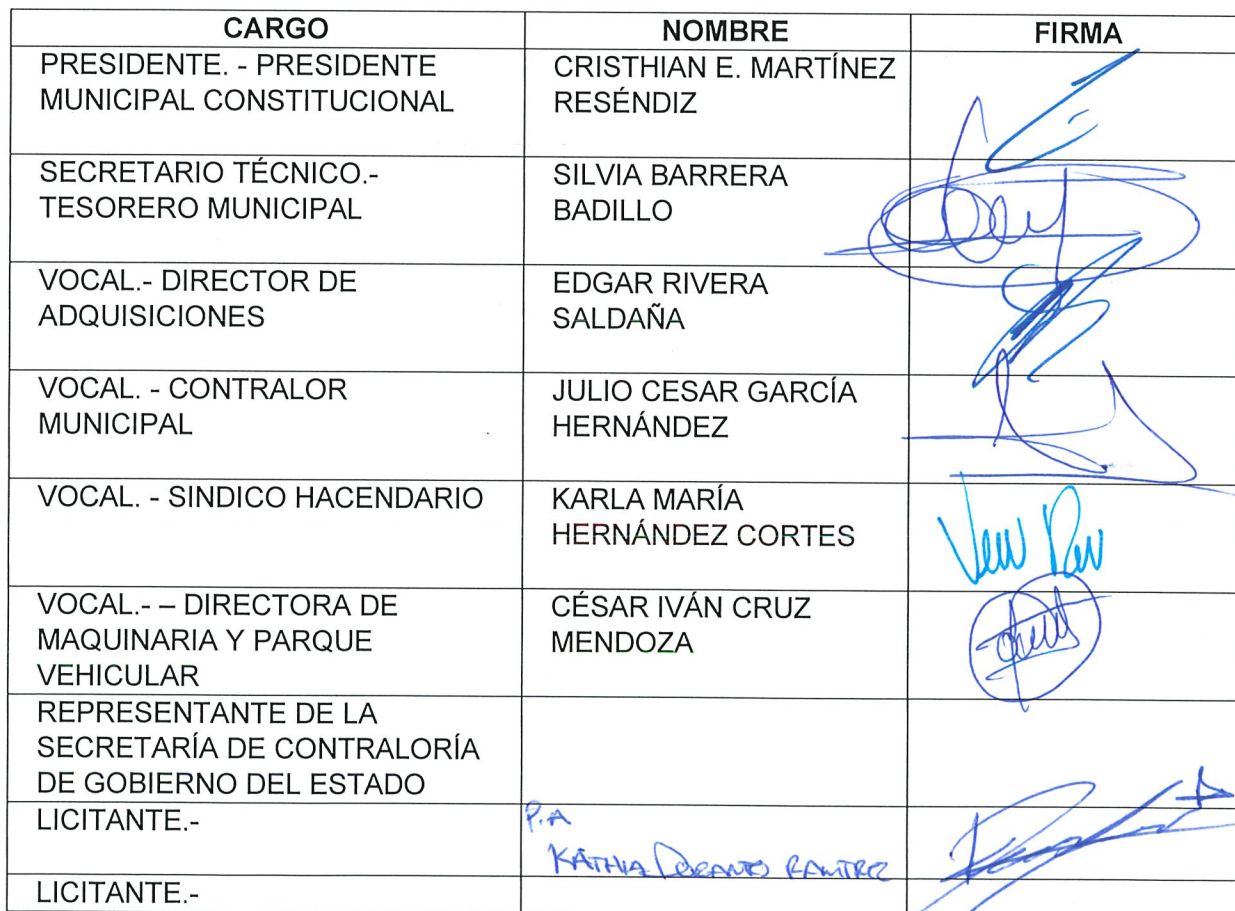 CARGO NOMBRE FIRMA
PRESIDENTE. - PRESIDENTE
MUNICIPAL CONSTITUCIONAL
CRISTHIAN E. MARTÍNEZ
RESÉNDIZ
SECRETARIO TÉCNICO.-
TESORERO MUNICIPAL
SILVIA BARRERA
BADILLO
VOCAL.- DIRECTOR DE
ADQUISICIONES
EDGAR RIVERA
SALDAÑA
VOCAL. - CONTRALOR
MUNICIPAL
JULIO CESAR GARCÍA
HERNÁNDEZ
VOCAL. - SINDICO HACENDARIO
KARLA MARÍA
HERNÁNDEZ CORTES
VOCAL.- – DIRECTORA DE
MAQUINARIA Y PARQUE
VEHICULAR
CÉSAR IVÁN CRUZ
MENDOZA
REPRESENTANTE DE LA
SECRETARÍA DE CONTRALORÍA
DE GOBIERNO DEL ESTADO
LICITANTE.-
P.A
KATHIA RAMIREZ
LICITANTE.-